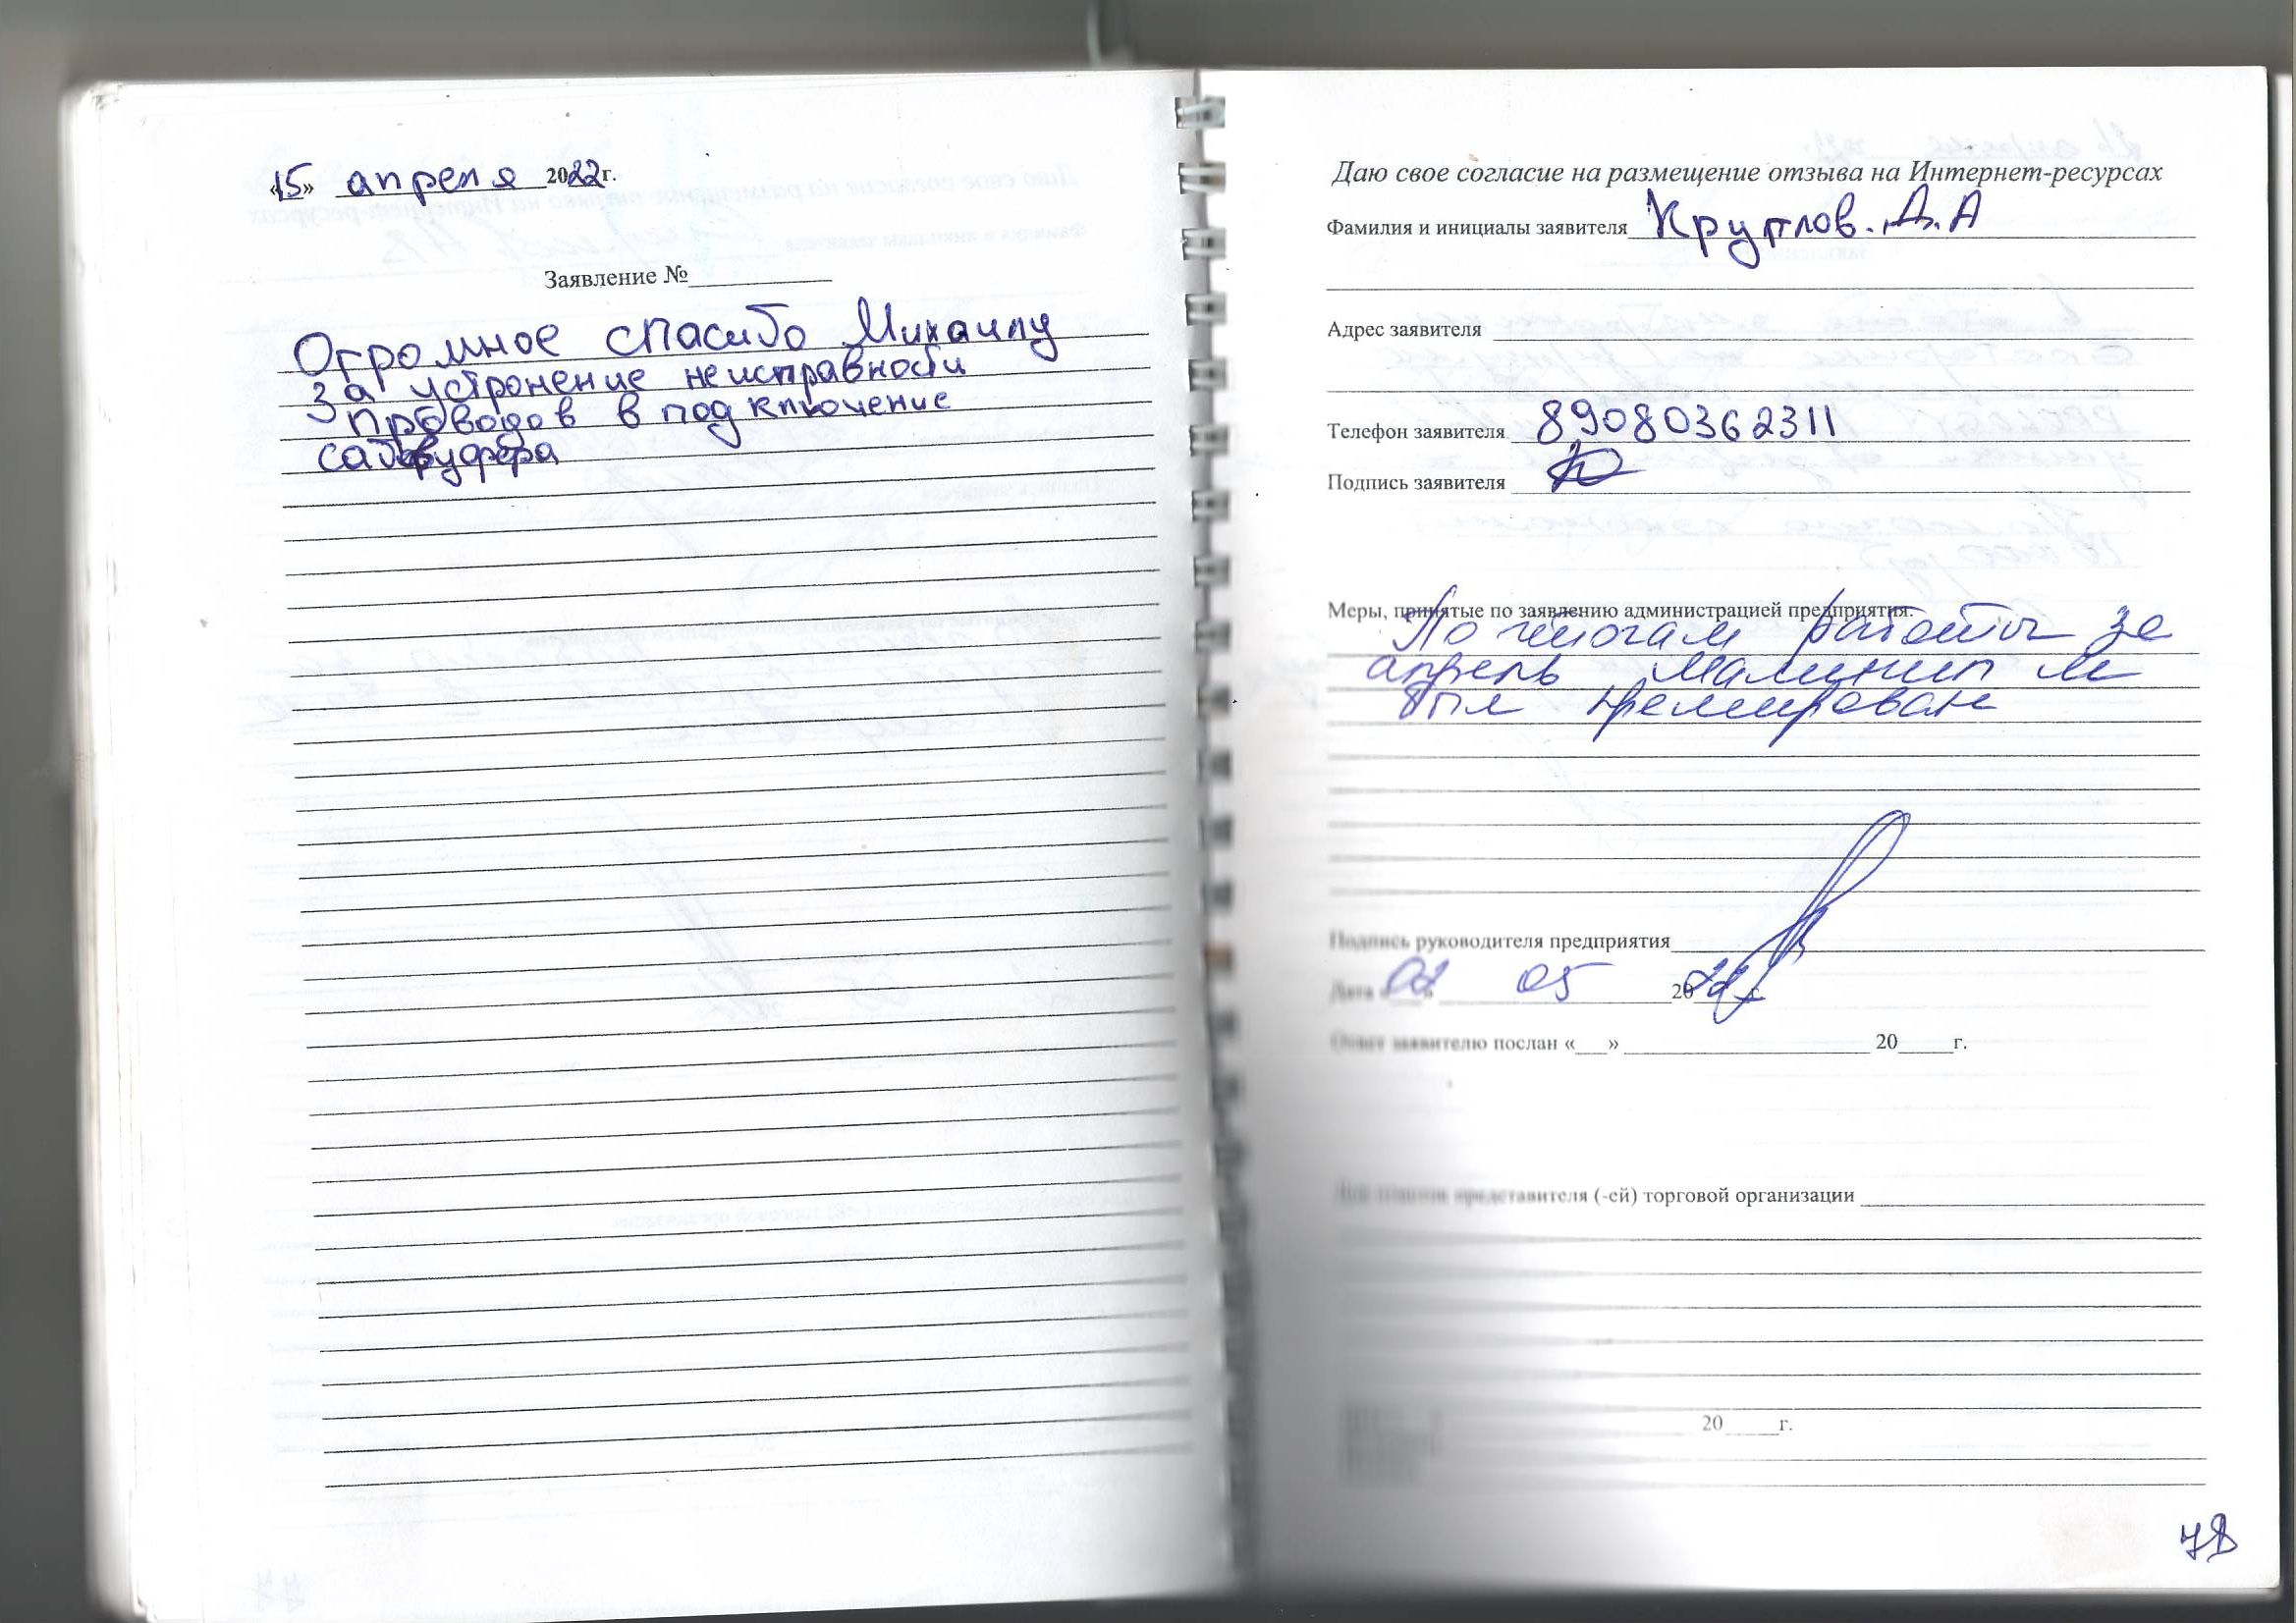 «15» апреля 2022г.
Заявление №
Огромное спасибо Михаилу
за устронение неисправности
проводов в подключение
сабвуфера
Даю свое согласие на размещение отзыва на Интернет-ресурсах
Фамилия и инициалы заявителя Круглов. Д.А
Адрес заявителя
Телефон заявителя 89080362311
Подпись заявителя
Меры, принятые по заявлению администрацией предприятия:
По итогам работы за
апрель М
был премирован
Подпись руководителя предприятия
Дата « » 05 2022г.
Ответ заявителю послан «___» 20 г.
представителя (-ей) торговой организации
20 г.
78